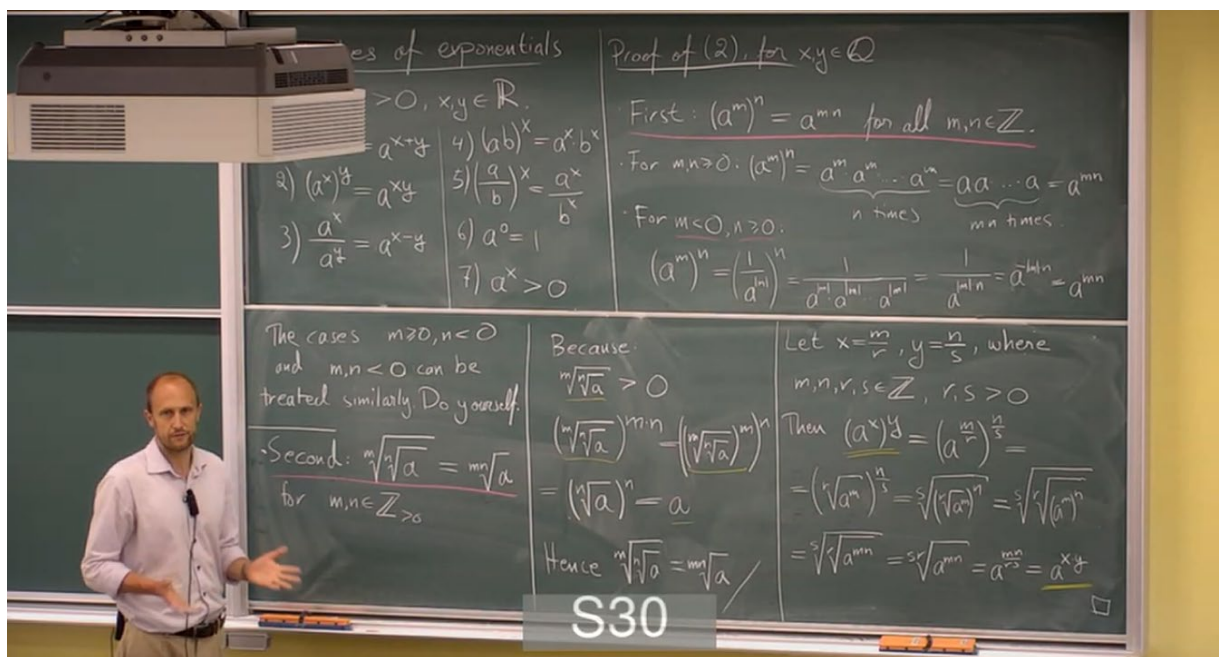 es of exponentials
>0, x,y∈ℝ.
= a^{x+y}
2) (a^x)^y = a^{xy}
3) \frac{a^x}{a^y} = a^{x-y}
4) (ab)^x = a^x·b^x
5) (\frac{a}{b})^x = \frac{a^x}{b^x}
6) a^0 = 1
7) a^x > 0
Proof of (2), for x,y∈ℚ
· First: (a^m)^n = a^{mn} for all m,n∈ℤ.
· For m,n≥0: (a^m)^n = a^m·a^m·...·a^m = aa·...·a = a^{mn}
n times
mn times
· For m<0, n≥0.
(a^m)^n = (\frac{1}{a^{|m|}})^n = \frac{1}{a^{|m|}·a^{|m|}...a^{|m|}} = \frac{1}{a^{|m|n}} = a^{-|m|n} = a^{mn}
The cases m≥0, n<0
and m,n<0 can be
treated similarly. Do yourself.
· Second: \sqrt[m]{\sqrt[n]{a}} = \sqrt[mn]{a}
for m,n∈ℤ_{>0}
Because:
\sqrt[m]{\sqrt[n]{a}} > 0
(\sqrt[m]{\sqrt[n]{a}})^{m·n} = ((\sqrt[m]{\sqrt[n]{a}})^m)^n
= (\sqrt[n]{a})^n = a
Hence \sqrt[m]{\sqrt[n]{a}} = \sqrt[mn]{a}
Let x=\frac{m}{r}, y=\frac{n}{s}, where
m,n,r,s∈ℤ, r,s>0
Then (a^x)^y = (a^{\frac{m}{r}})^{\frac{n}{s}} =
= (\sqrt[r]{a^m})^{\frac{n}{s}} = \sqrt[s]{(\sqrt[r]{a^m})^n} = \sqrt[s]{\sqrt[r]{(a^m)^n}}
= \sqrt[s]{\sqrt[r]{a^{mn}}} = \sqrt[sr]{a^{mn}} = a^{\frac{mn}{rs}} = a^{x·y}
□
S30